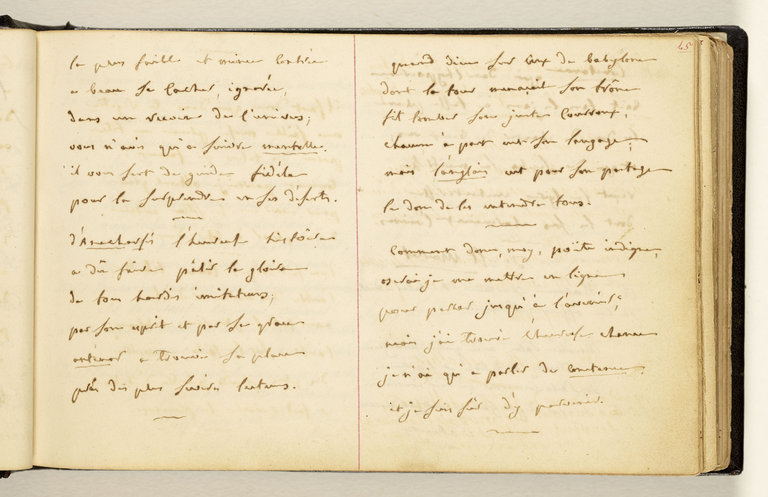 le plus faible et mince
a beau se cacher, ignorée,
dans un recoin de l'univers;
vous n'avés qu'à suivre mentelle.
il vous sert de guide fidéle
pour la surprendre en ses déserts.
d'Anacharsis l'heureux histoire
a dû faire pâlir la gloire
de tous hardis imitateurs;
par son esprit et par sa grace
antenor a trouvé sa place
près des plus sevères lecteurs.
45
quand dieu sur ceux de babylone
dont la tour menaçait son trône
fit tomber son juste courroux,
chacun à part eut son langage;
mais l'anglois eut pour son partage
le don de les entendre tous.
Comment donc, moi, poëte indigne,
oserai-je me mettre en ligne
pour percer jusqu'à l'avenir;
mais j'ai trouvé chance
je n'ai qu'à parler de constance,
et je suis sûr d'y parvenir.